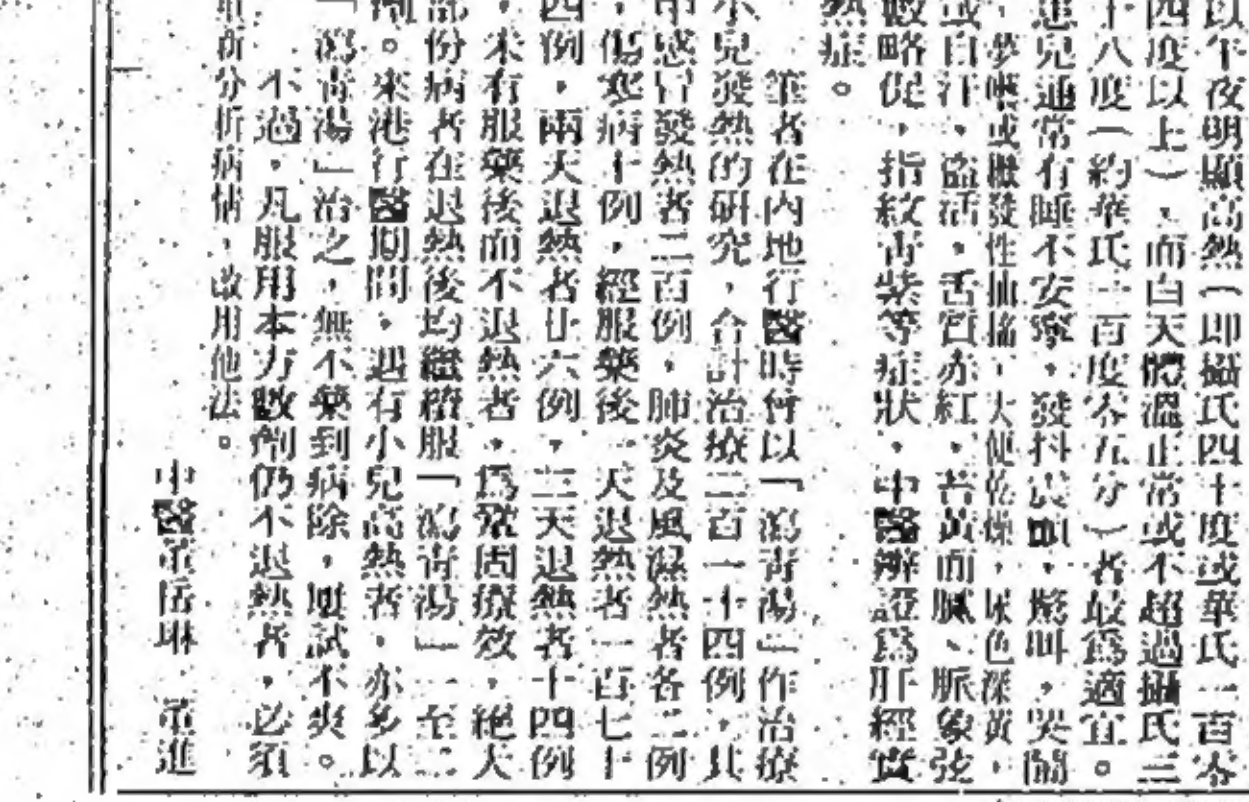 以午夜明顯高熱（即攝氏四十度或華氏一百零
四度以上），而白天體溫正常或不超過攝氏三
十八度（約華氏一百度零五分）者最爲適宜。
患兒通常有睡不安寧，發抖，驚叫，哭鬧
，夢囈或機發性抽搐，大便乾燥，尿色深黃，
或自汗，盜汗，舌質赤紅，苔黃而膩、脈象弦
數略促，指紋青紫等症狀，中醫辨證爲肝經實
熱症。
筆者在內地行醫時曾以「瀉青湯」作治療
小兒發熱的研究，合計治療二百一十四例，其
中感冒發熱者二百例，肺炎及風濕熱者各二例
，傷寒病十例，經服藥後一天退熱者一百七十
四例，兩天退熱者廿六例，三天退熱者十四例
，未有服藥後而不退熱者，爲鞏固療效，絕大
部份病者在退熱後均繼續服「瀉青湯」一至二
劑。來港行醫期間，遇有小兒高熱者，亦多以
「瀉青湯」治之，無不藥到病除，屢試不爽。
不過，凡服用本方數劑仍不退熱者，必須
重新分析病情，改用他法。
中醫董岳琳 董進